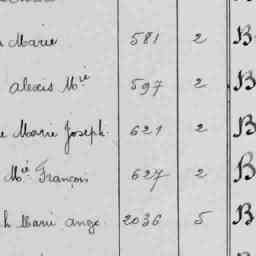 Marie 581 2 B
alexis Mie 597 2 B
e Marie Joseph. 621 2 B
Mie François 627 2 B
h Marie ange 2036 5 B